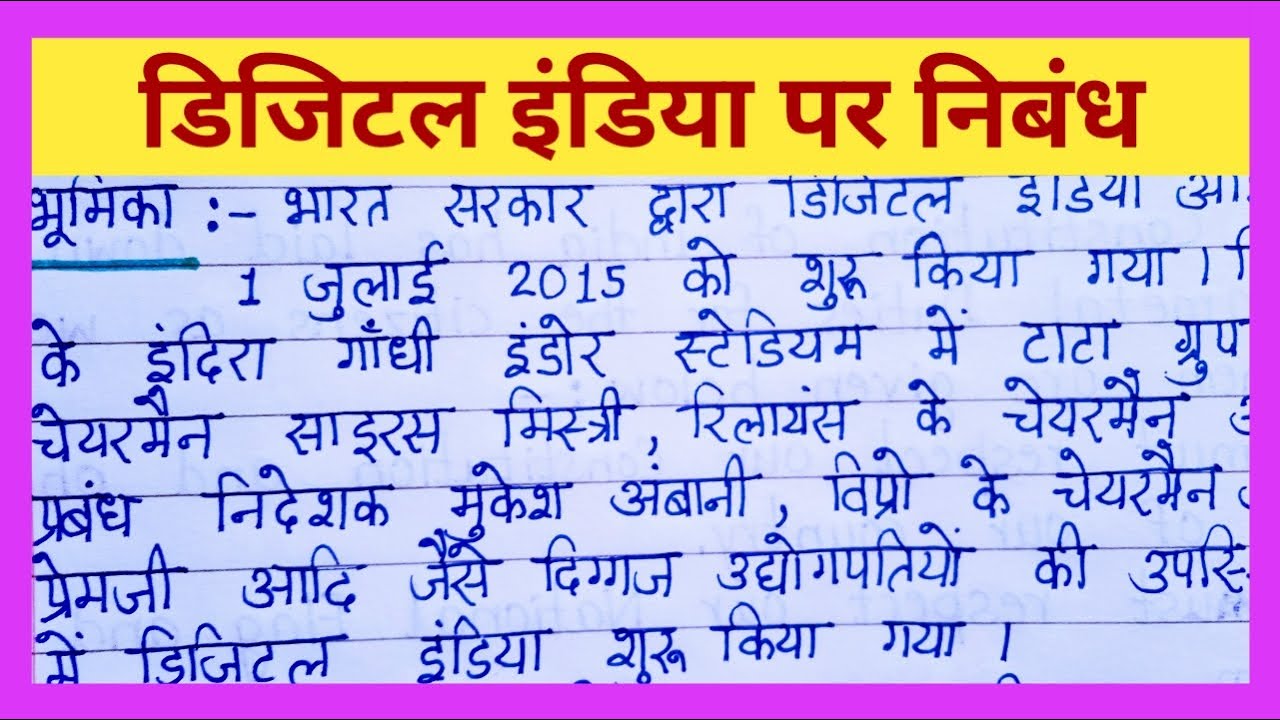 डिजिटल इंडिया पर निबंध
भूमिका :- भारत सरकार द्वारा डिजिटल इंडिया
1 जुलाई 2015 को शुरू किया गया ।
के इंदिरा गाँधी इंडोर स्टेडियम में टाटा ग्रुप
चेयरमैन साइरस मिस्त्री, रिलायंस के चेयरमैन
प्रबंध निदेशक मुकेश अंबानी, विप्रो के चेयरमैन
प्रेमजी आदि जैसे दिग्गज उद्योगपतियों की
में डिजिटल इंडिया शुरू किया गया ।